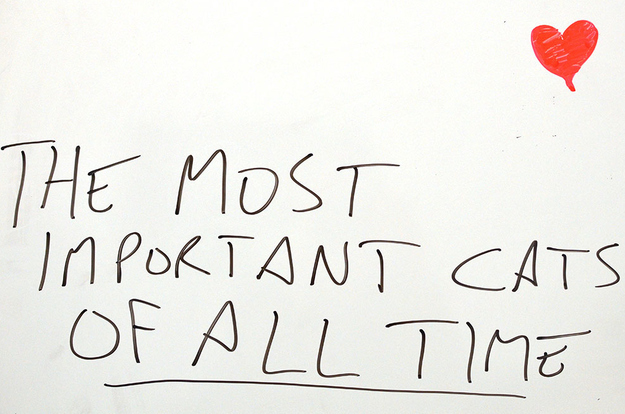 THE MOST
IMPORTANT CATS
OF ALL TIME